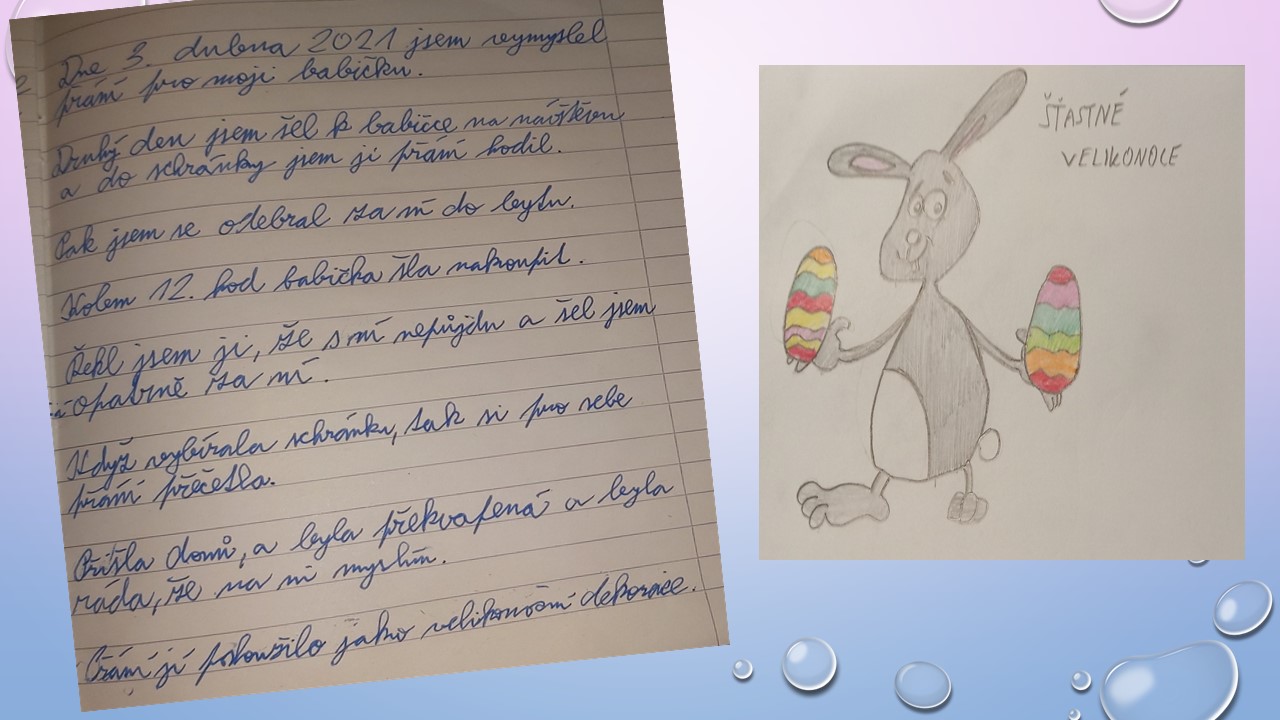 Dne 3. dubna 2021 jsem vymyslel
přání pro moji babičku.
Druhý den jsem šel k babičce na návštěvu
a do schránky jsem jí přání hodil.
Pak jsem se odebral za ní do bytu.
Kolem 12. hod babička šla nakoupit.
Řekl jsem jí, že s ní nepůjdu a šel jsem
opatrně za ní.
Když vybírala schránku, tak si pro sebe
přání přečetla.
Přišla domů, a byla překvapená a byla
ráda, že na ni myslím.
Přání jí posloužilo jako velikonoční dekorace.
ŠŤASTNÉ
VELIKONOCE